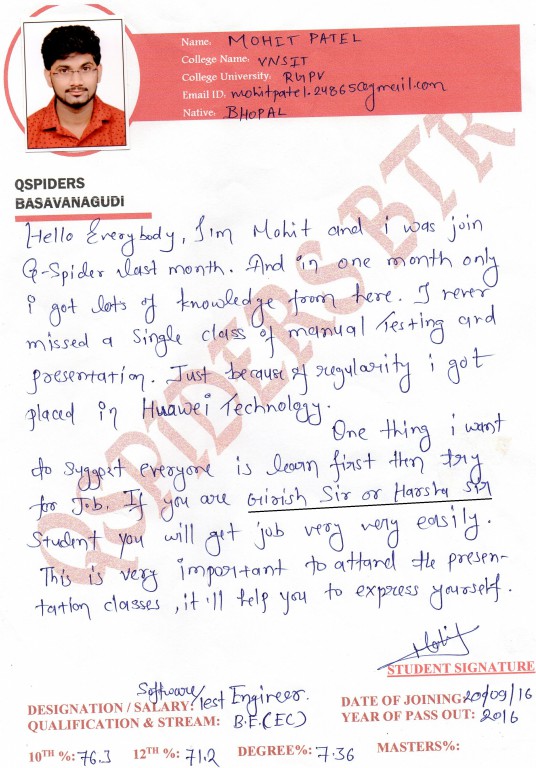 Name. MOHIT PATEL
College Name. VNSIT
College University. RGPV
Email ID. mohitpatel.24865@gmail.com
Native. BHOPAL
QSPIDERS
BASAVANAGUDI
QSPIDERS BTR
Hello Everybody, I'm Mohit and i was join
Q-Spider last month. And in one month only
i got lots of knowledge from here. I never
missed a single class of manual Testing and
presentation. Just because of regularity i got
placed in Huawei Technology.
One thing i want
to suggest everyone is learn first then try
for Job. If you are Girish Sir or Harsha Sir
Student you will get job very very easily.
This is very important to attand the presen-
tation classes, it'll help you to express yourself.
Mohit
STUDENT SIGNATURE
DESIGNATION / SALARY: Software Test Engineer.
DATE OF JOINING: 20/09/16
QUALIFICATION & STREAM: B.E.(EC)
YEAR OF PASS OUT: 2016
10TH %: 76.3 12TH %: 71.2 DEGREE%: 7.36 MASTERS%: